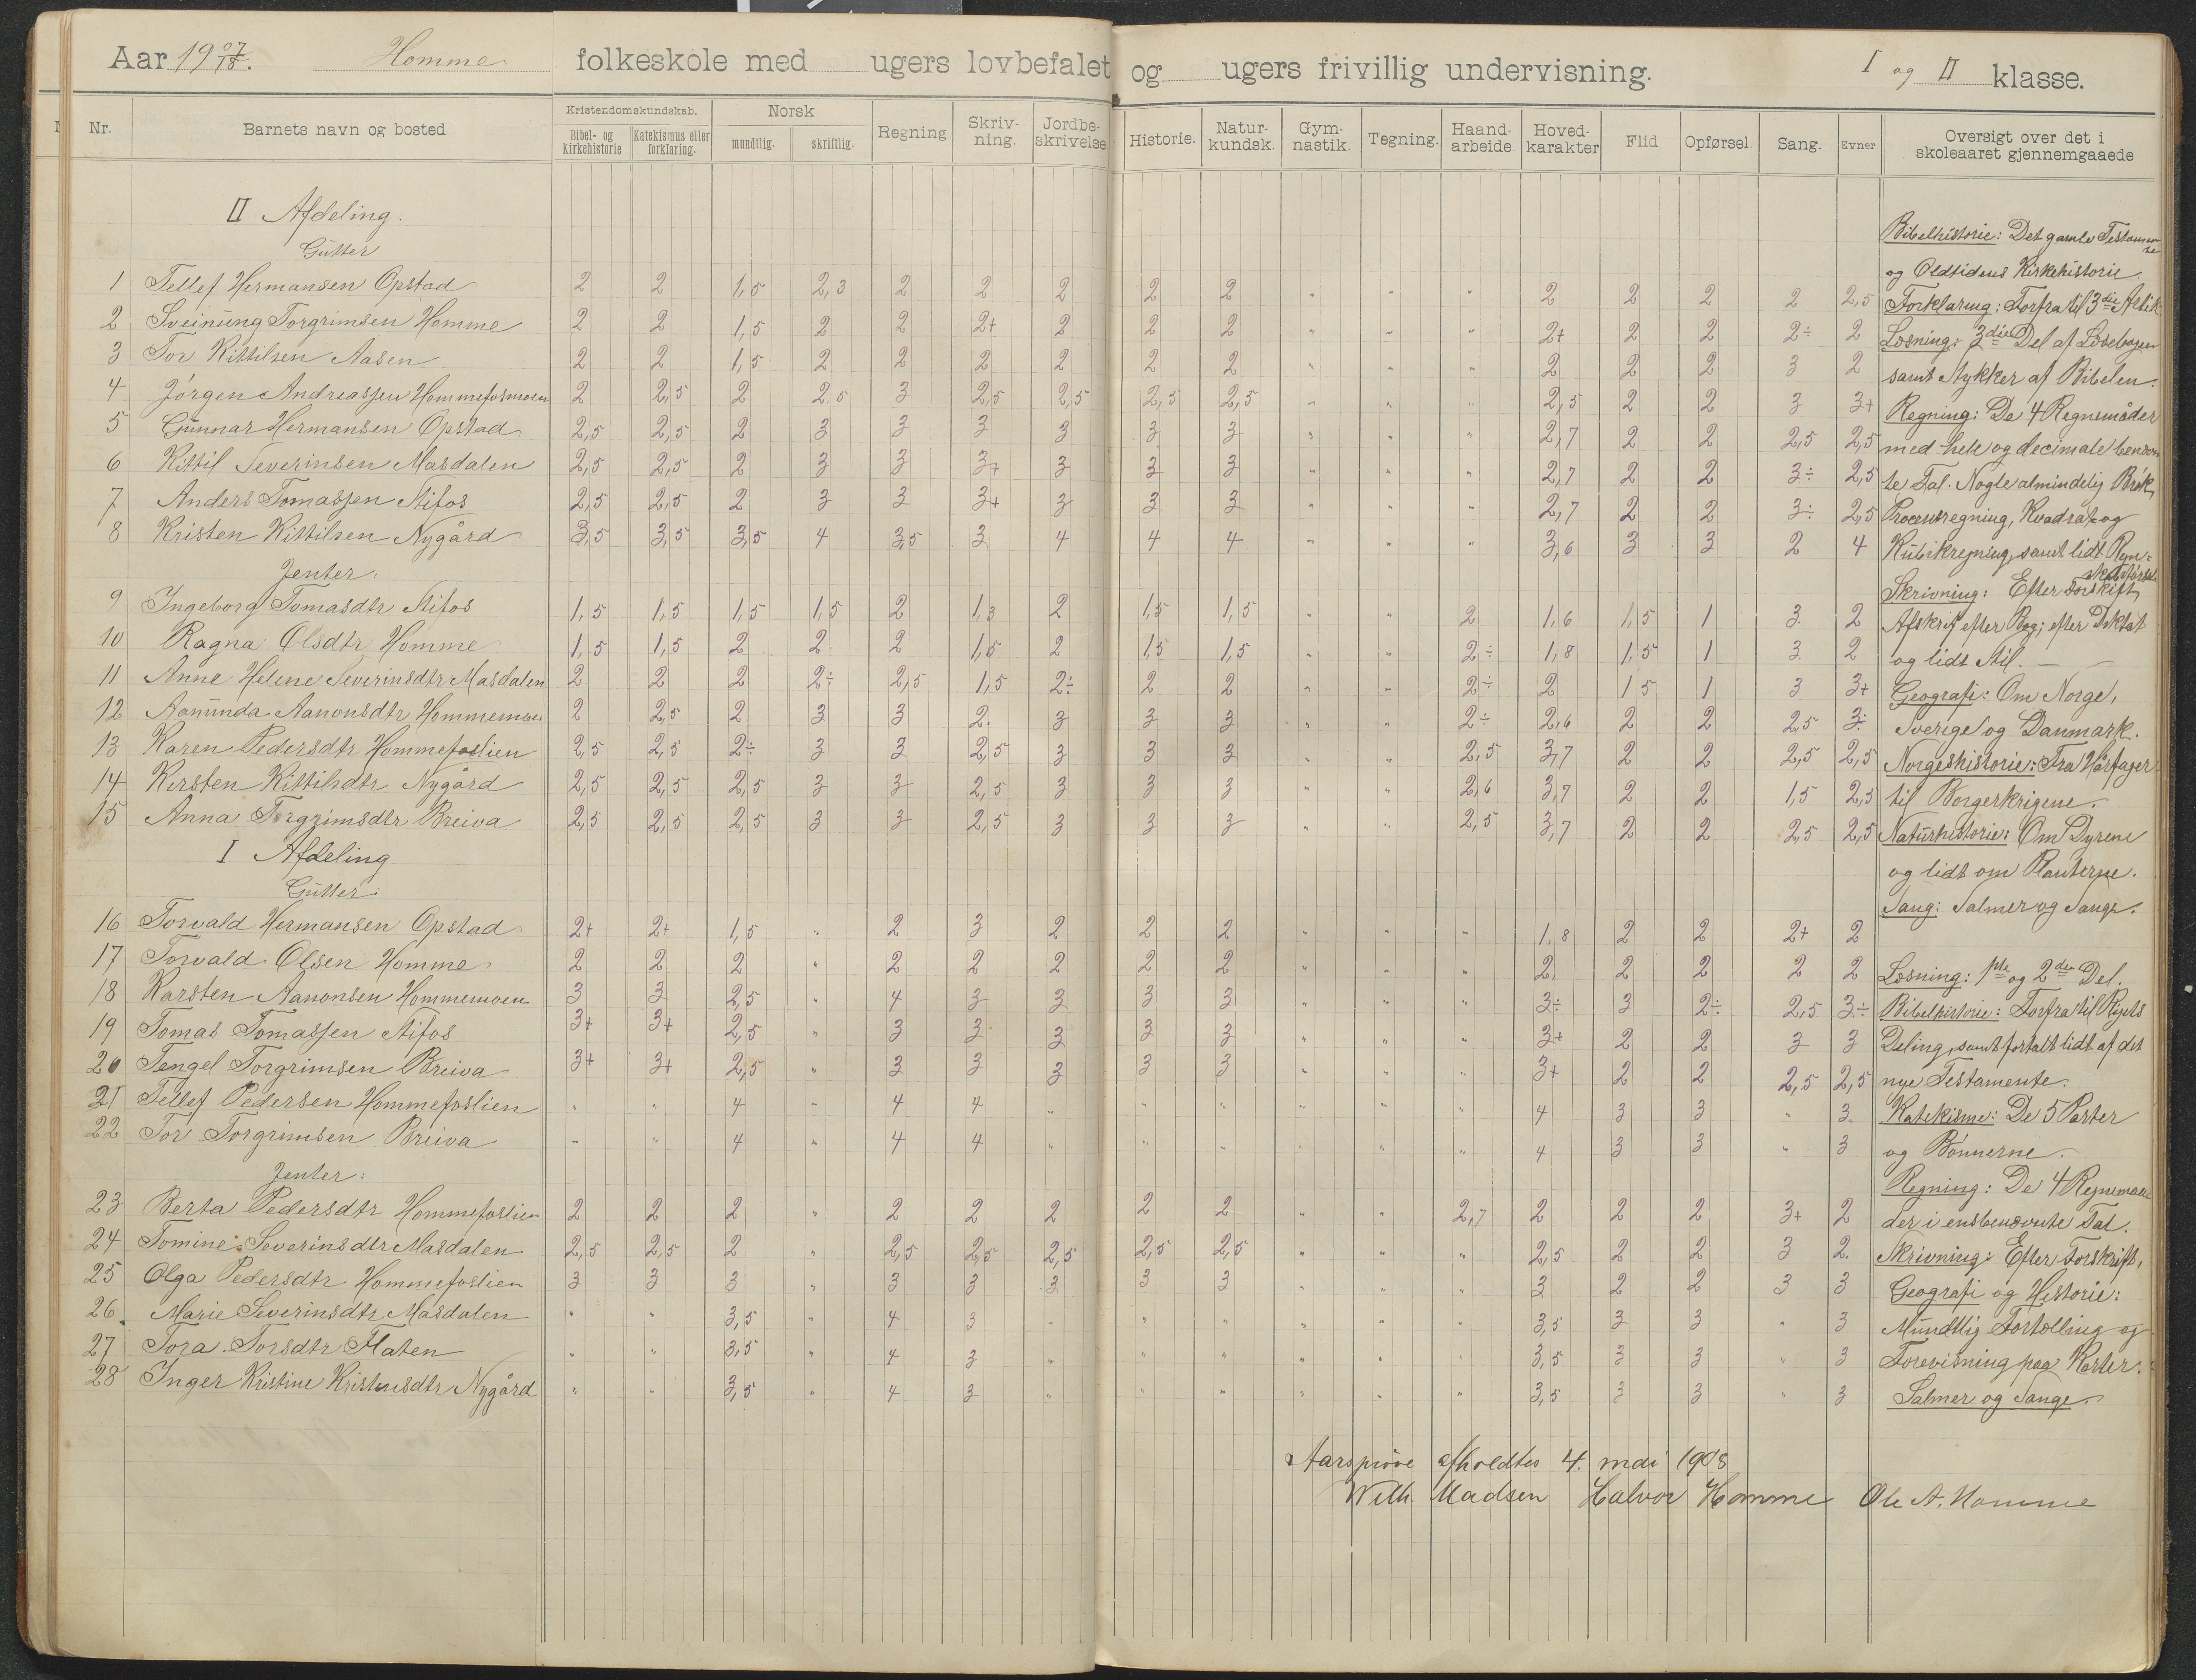 Aar 19 07/18. Homme folkeskole med ugers lovbefalet og ugers frivillig undervisning. I og II klasse.
Nr. Barnets navn og bosted Kristendomskundskab. Bibel- og kirkehistorie Katekismus eller forklaring. Norsk mundtlig. skriftlig. Regning Skriv-ning. Jordbe-skrivelse. Historie. Natur-kundsk. Gym-nastik. Tegning. Haand-arbeide. Hoved-karakter Flid Opførsel. Sang. Evner Oversigt over det i skoleaaret gjennemgaaede
II Afdeling.
Gutter
1 Tellef Hermansen Opstad 2 2 1,5 2,3 2 2 2 2 2 " " " 2 2 2 2 2,5
2 Sveinung Torgrimsen Homme 2 2 1,5 2 2 2+ 2 2 2 " " " 2+ 2 2 2÷ 2
3 Tor Kittilsen Aasen 2 2 1,5 2 2 2 2 2 2 " " " 2 2 2 3 2
4 Jørgen Andreassen Hommefosmoen 2 2,5 2 2.5 3 2,5 2,5 2,5 2,5 " " " 2,5 2 2 3 3+
5 Gunnar Hermansen Opstad 2,5 2,5 2 3 3 3 3 3 3 " " " 2,7 2 2 2,5 2,5
6 Kittil Severinsen Masdalen 2,5 2,5 2 3 3 3+ 3 3 3 " " " 2,7 2 2 3÷ 2,5
7 Anders Tomassen Stifos 2,5 2,5 2 3 3 3+ 3 3 3 " " " 2,7 2 2 3÷ 2,5
8 Kristen Kittilsen Nygård 3,5 3,5 3,5 4 3,5 3 4 4 4 " " " 3,6 3 3 2 4
Jenter:
9 Ingeborg Tomasdtr Stifos 1,5 1,5 1,5 1,5 2 1,3 2 1,5 1,5 " " 2 1,6 1,5 1 3 2
10 Ragna Olsdtr Homme 1,5 1,5 2 2 2 1,5 2 1,5 1,5 " " 2÷ 1,8 1,5 1 3 2
11 Anne Helene Severinsdtr Masdalen 2 2 2 2÷ 2,5 1,5 2÷ 2 2 " " 2÷ 2 1 5 1 3 3+
12 Aanunda Aanonsdtr Hommemoen 2 2,5 2 3 3 2. 3 3 3 " " 2÷ 2,6 2 2 2,5 3÷
13 Karen Pedersdtr Hommefoslien 2,5 2,5 2÷ 3 3 2,5 3 3 3 " " 2,5 3,7 2 2 2,5 2,5
14 Kirsten Kittilsdtr Nygård 2,5 2,5 2,5 3 3 2,5 3 3 3 " " 2,6 3,7 2 2 1,5 2,5
15 Anna Torgrimsdtr Breiva 2,5 2,5 2,5 3 3 2,5 3 3 3 " " 2,5 3,7 2 2 2,5 2,5
I Afdeling
Gutter:
16 Torvald Hermansen Opstad 2+ 2+ 1,5 " 2 3 2 2 2 " " " 1,8 2 2 2+ 2
17 Torvald Olsen Homme 2 2 2 " 2 2 2 2 2 " " " 2. 2 2 2 2
18 Karsten Aanonsen Hommemoen 3 3 2,5 " 4 3 3 3 3 " " " 3÷ 3 2÷ 2,5 3÷
19 Tomas Tomassen Stifos 3+ 3+ 2,5 " 3 3 3 3 3 " " " 3+ 2 2 3 3
20 Tengel Torgrimsen Breiva 3+ 3+ 2,5 " 3 3 3 3 3 " " " 3+ 2 2 2,5 2,5
21 Tellef Pedersen Hommefoslien " " 4 " 4 4 " " " " " " 4 3 3 " 3.
22 Tor Torgrimsen Breiva " " 4 " 4 4 " " " " " " 4 3 3 " 3
Jenter:
23 Berta Pedersdtr Hommefoslien 2 2 2 " 2 2 2 2 2 " " 2,7 2 2 2 3+ 2
24 Tomine Severinsdtr Masdalen 2,5 2,5 2 " 2,5 2,5 2,5 2,5 2,5 " " " 2,5 2 2 3 2.
25 Olga Pedersdtr Hommefoslien 3 3 3 " 3 3 3 3 3 " " " 3 2 2 3 3
26. Marie Severinsdtr Masdalen " " 3,5 " 4 3 " " " " " " 3,5 3 3 " 3
27 Tora Torsdtr Flaten " " 3,5 " 4 3 " " " " " " 3,5 3 3 " 3
28 Inger Kristine Kristensdtr Nygård " " 3,5 " 4 3 " " " " " " 3,5 3 3 " 3
Bibelhistorie: Det gamle Testamente
og Oldtidens Kirkehistorie.
Forklaring: Forfra til 3die Artik
Læsning: 3die Del af Læsebogen
samt Stykker af Bibelen.
Regning: De 4 Regnemåder
med hele og decimale benævn
te Tal. Nogle almindelig Brøk,
Procentregning, Kvadrat og
Kubikregning, samt lidt Regn-
skabsførsel.
Skrivning: Efter Forskrift,
Afskrift efter Bog; efter Diktat
og lidt Stil.
Geografi: Om Norge,
Sverige og Danmark.
Norgeshistorie: Fra Hårfager
til Borgerkrigene.
Naturhistorie: Om Dyrene
og lidt om Planterne.
Sang: Salmer og Sange.
Læsning: 1ste og 2den Del.
Bibelhistorie: Forfra til Rigets
Deling, samt fortalt lidt af det
nye Testamente.
Katekisme: De 5 Parter
og Bønnerne.
Regning: De 4 Regnemaa-
der i ensbenævnte Tal.
Skrivning: Efter Forskrift,
Geografi og Historie:
Mundtlig Fortælling og
Forevisning paa Karter.
Salmer og Sange.
Aarsprøve afholdtes 4. mai 1908
Wilh. Madsen Halvor Homme Ole A. Homme